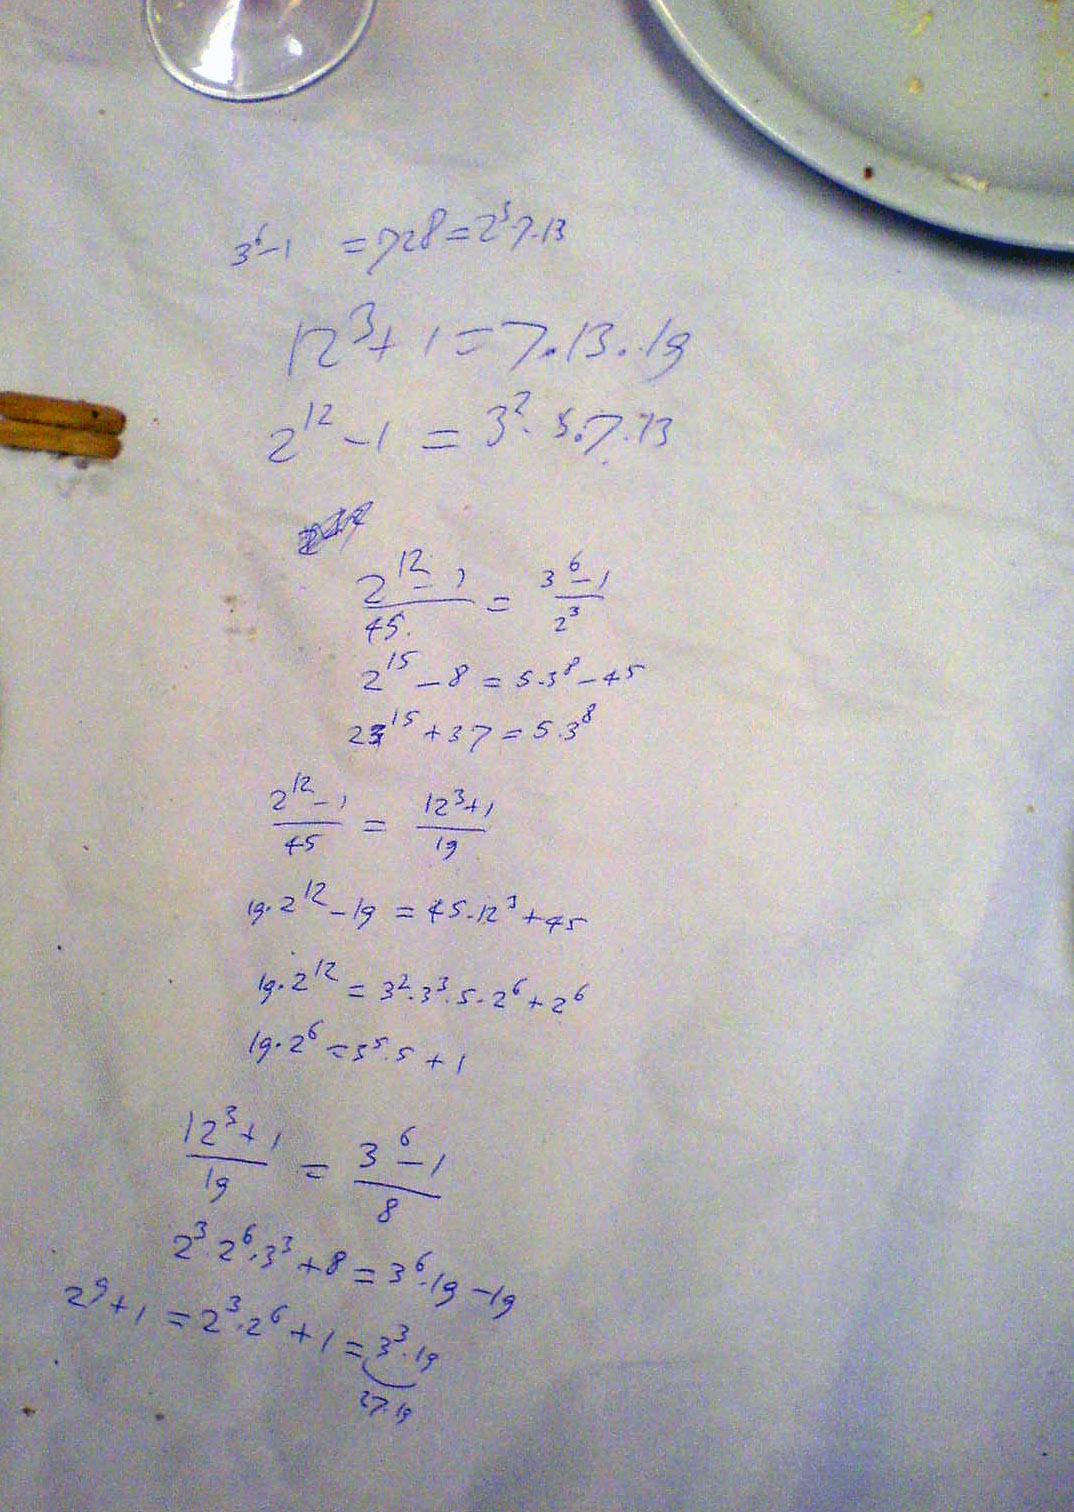 3⁶-1 = 728 = 2³·7·13
12³+1 = 7·13·19
2¹²-1 = 3²·5·7·13
(2¹²-1)/45 = (3⁶-1)/2³
2¹⁵-8 = 5·3⁸-45
2¹⁵+37 = 5·3⁸
(2¹²-1)/45 = (12³+1)/19
19·2¹²-19 = 45·12³+45
19·2¹² = 3²·3³·5·2⁶+2⁶
19·2⁶ = 3⁵·5+1
(12³+1)/19 = (3⁶-1)/8
2³·2⁶·3³+8 = 3⁶·19-19
2⁹+1 = 2³·2⁶+1 = 3³·19
27·19